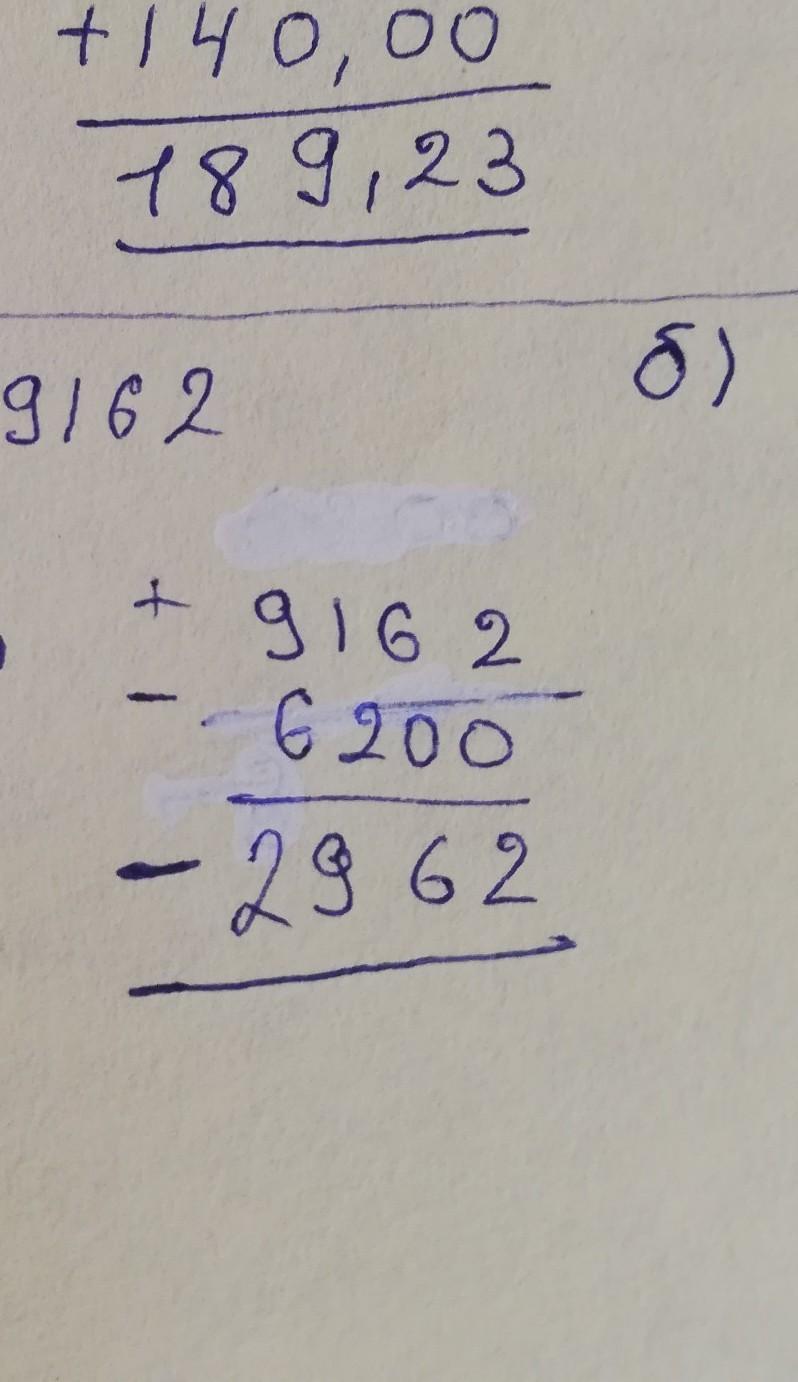 +140,00
189,23
9162 б)
+ 9162
- 6200
-2962